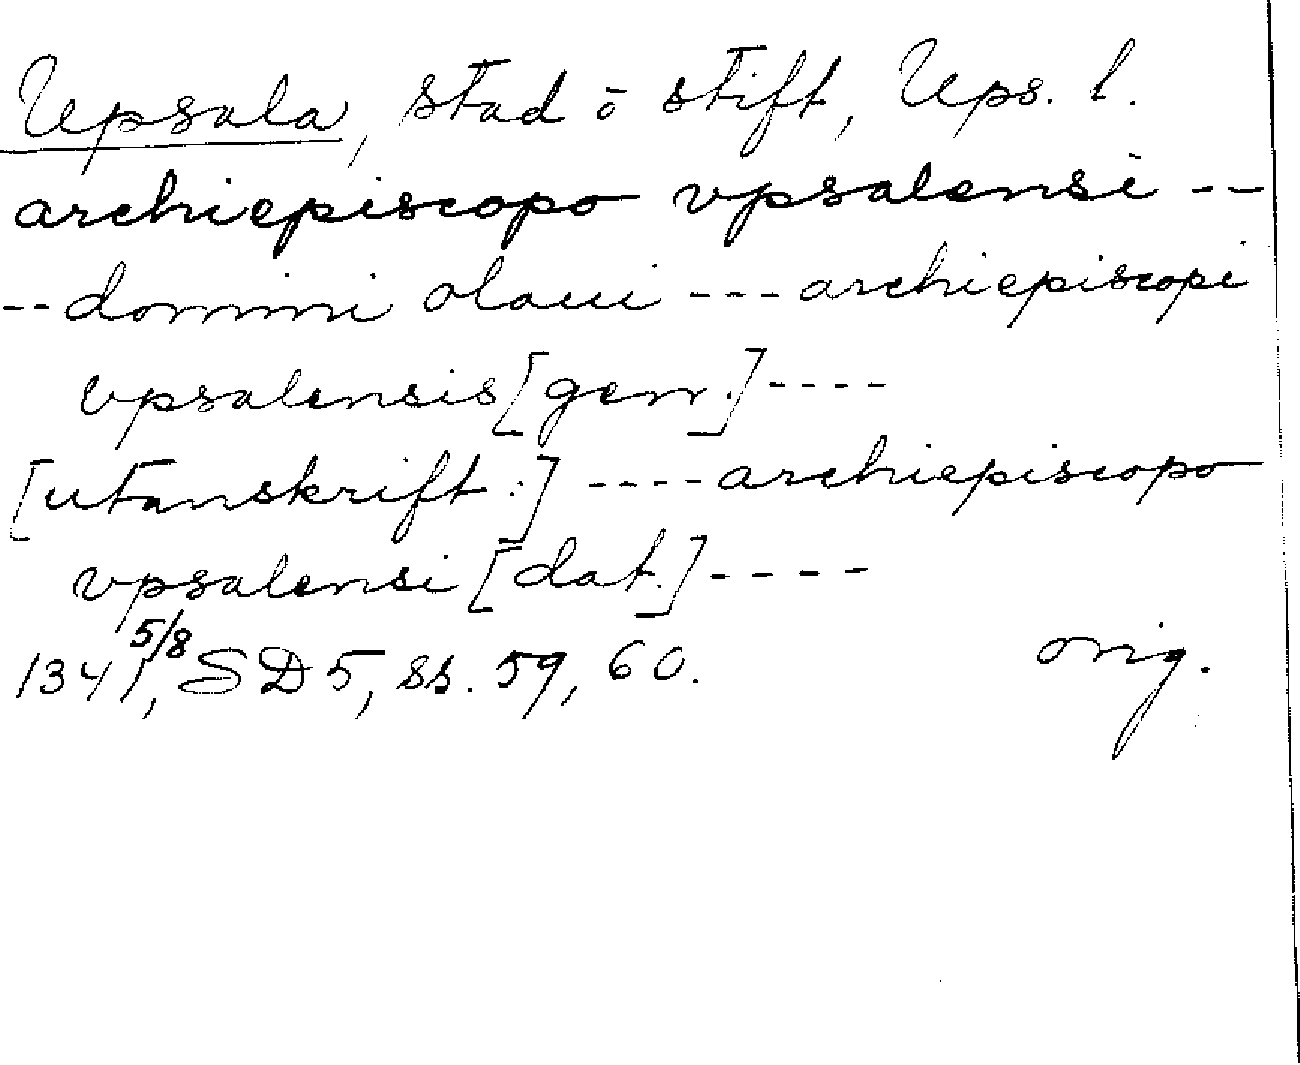 Upsala, stad o stift, Ups. l.
archiepiscopo vpsalensi --
-- domini olaui --- archiepiscopi
vpsalensis [gen.] ----
[utanskrift:] ---- archiepiscopo
vpsalensi [dat.] ----
1341 5/8, SD 5, ss. 59, 60. orig.